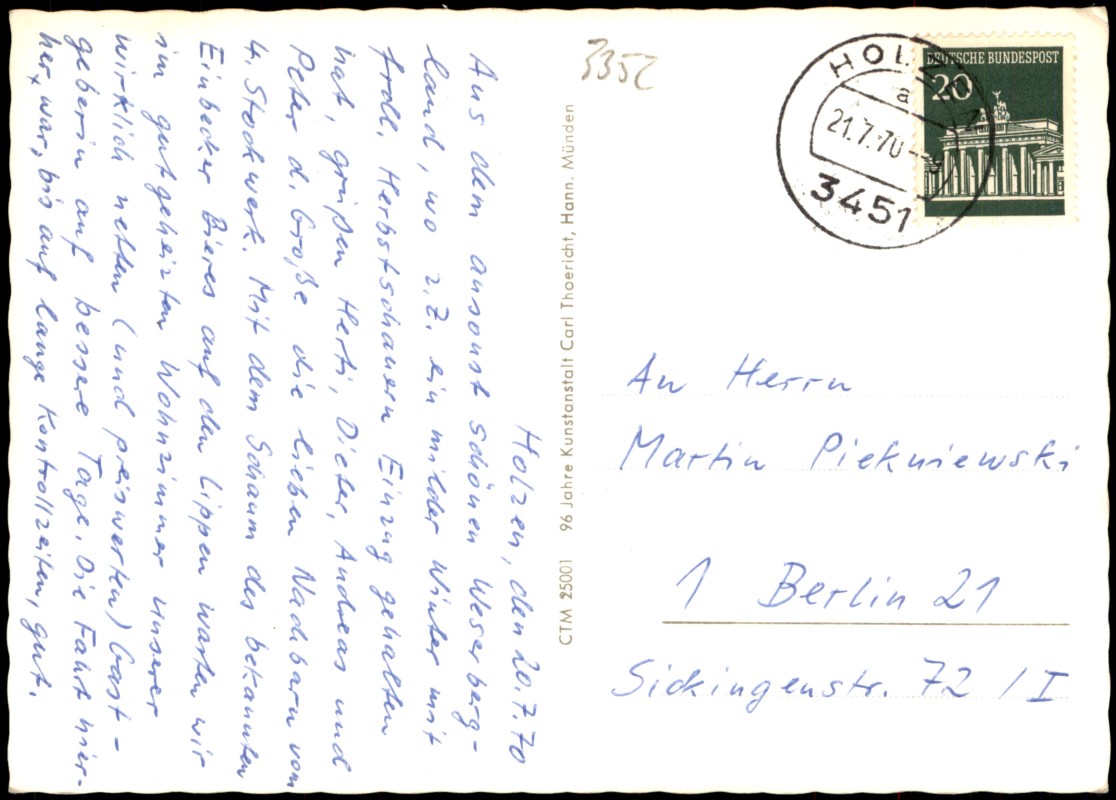 Holzen, den 20.7.70
Aus dem ansonst schönen Weserberg-
land, wo z.Z. ein milder Winter mit
frdl. Herbstschauern Einzug gehalten
hat, grüßen Herti, Dieter, Andreas und
Peter d. Große die lieben Nachbarn vom
4. Stockwerk. Mit dem Schaum des bekannten
Einbecker Bieres auf den Lippen warten wir
im gutgeheizten Wohnzimmer unserer
wirklich netten (und preiswerten) Gast-
geberin auf bessere Tage. Die Fahrt hier-
her, war, bis auf lange Kontrollzeiten, gut.
3352
CTM 25001 96 Jahre Kunstanstalt Carl Thoericht, Hann. Münden
DEUTSCHE BUNDESPOST
20
HOLZEN
a
21.7.70
3451
An Herrn
Martin Piekniewski
1 Berlin 21
Sickingenstr. 72 / I